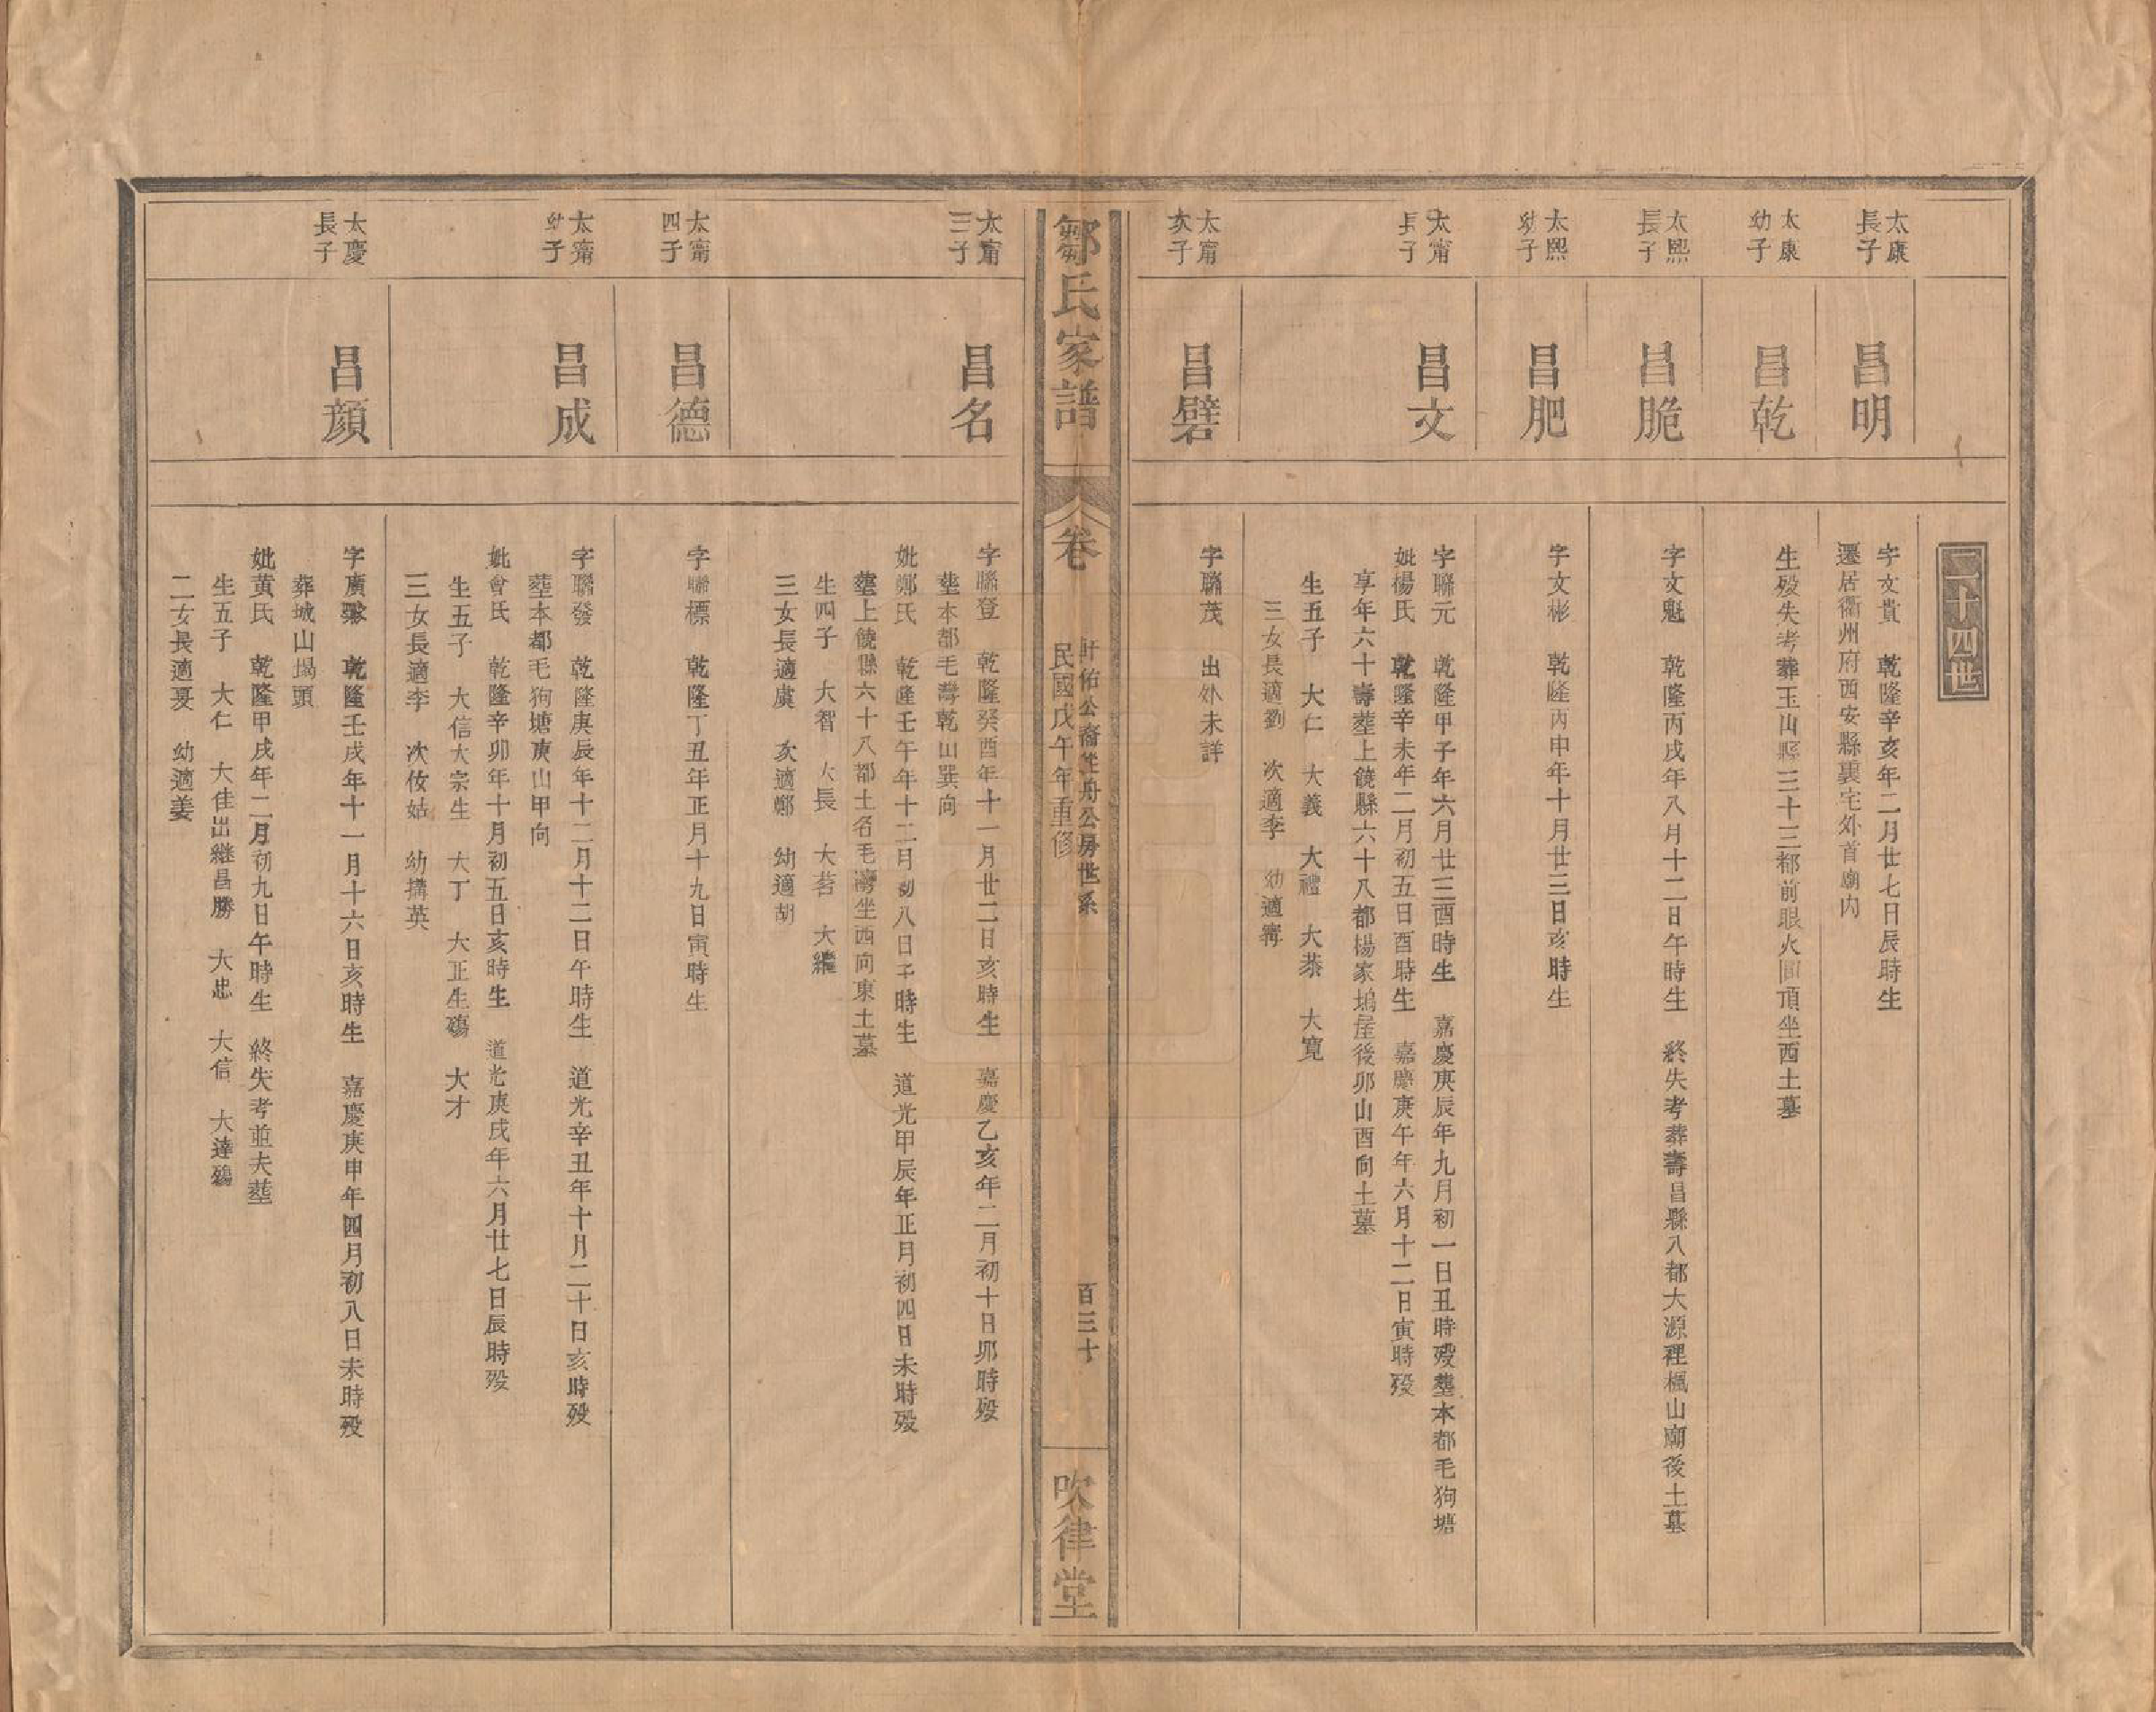 二十四世
太康
長子
昌明
字文貴　乾隆辛亥年二月廿七日辰時生
遷居衢州府西安縣裏宅外首廟內
太康
幼子
昌乾
生殁失考葬玉山縣三十三都前眼火面頂坐西土墓
太熙
長子
昌脆
字文魁　乾隆丙戌年八月十二日午時生　終失考葬壽昌縣八都大源裡楓山廟後土墓
太熙
幼子
昌肥
字文彬　乾隆丙申年十月廿三日亥時生
太甯
長子
昌文
字聯元　乾隆甲子年六月廿三酉時生　嘉慶庚辰年九月初一日丑時殁塟本都毛狗塘
妣楊氏　乾隆辛未年二月初五日酉時生　嘉慶庚午年六月十二日寅時殁
享年六十壽塟上饒縣六十八都楊家塢屋後卯山酉向土墓
生五子　大仁　大義　大禮　大恭　大寬
三女長適劉　次適李　幼適甯
太甯
次子
昌礕
字聯茂　出外未詳
鄒氏家譜
卷
軒佑公裔坐舟公房世系
民國戊午年重修
百三十
吹律堂
太甯
三子
昌名
字聯登　乾隆癸酉年十一月廿二日亥時生　嘉慶乙亥年二月初十日夘時殁
塟本都毛灣乾山巽向
妣鄭氏　乾隆壬午年十二月初八日子時生　道光甲辰年正月初四日未時殁
塟上饒縣六十八都土名毛灣坐西向東土墓
生四子　大智　大長　大茗　大繼
三女長適虞　次適鄭　幼適胡
太甯
四子
昌德
字聯標　乾隆丁丑年正月十九日寅時生
太甯
幼子
昌成
字聯發　乾隆庚辰年十二月十二日午時生　道光辛丑年十月二十日亥時殁
塟本都毛狗塘庚山甲向
妣會氏　乾隆辛卯年十月初五日亥時生　道光庚戌年六月廿七日辰時殁
生五子　大信大宗生　大丁　大正生殤　大才
三女長適李　次佽姑　幼搆英
太慶
長子
昌顏
字廣　乾隆壬戌年十一月十六日亥時生　嘉慶庚申年四月初八日未時殁
葬城山塌頭
妣黄氏　乾隆甲戌年二月初九日午時生　終失考並夫塟
生五子　大仁　大佳出継昌勝　大忠　大信　大達殤
二女長適夏　幼適姜